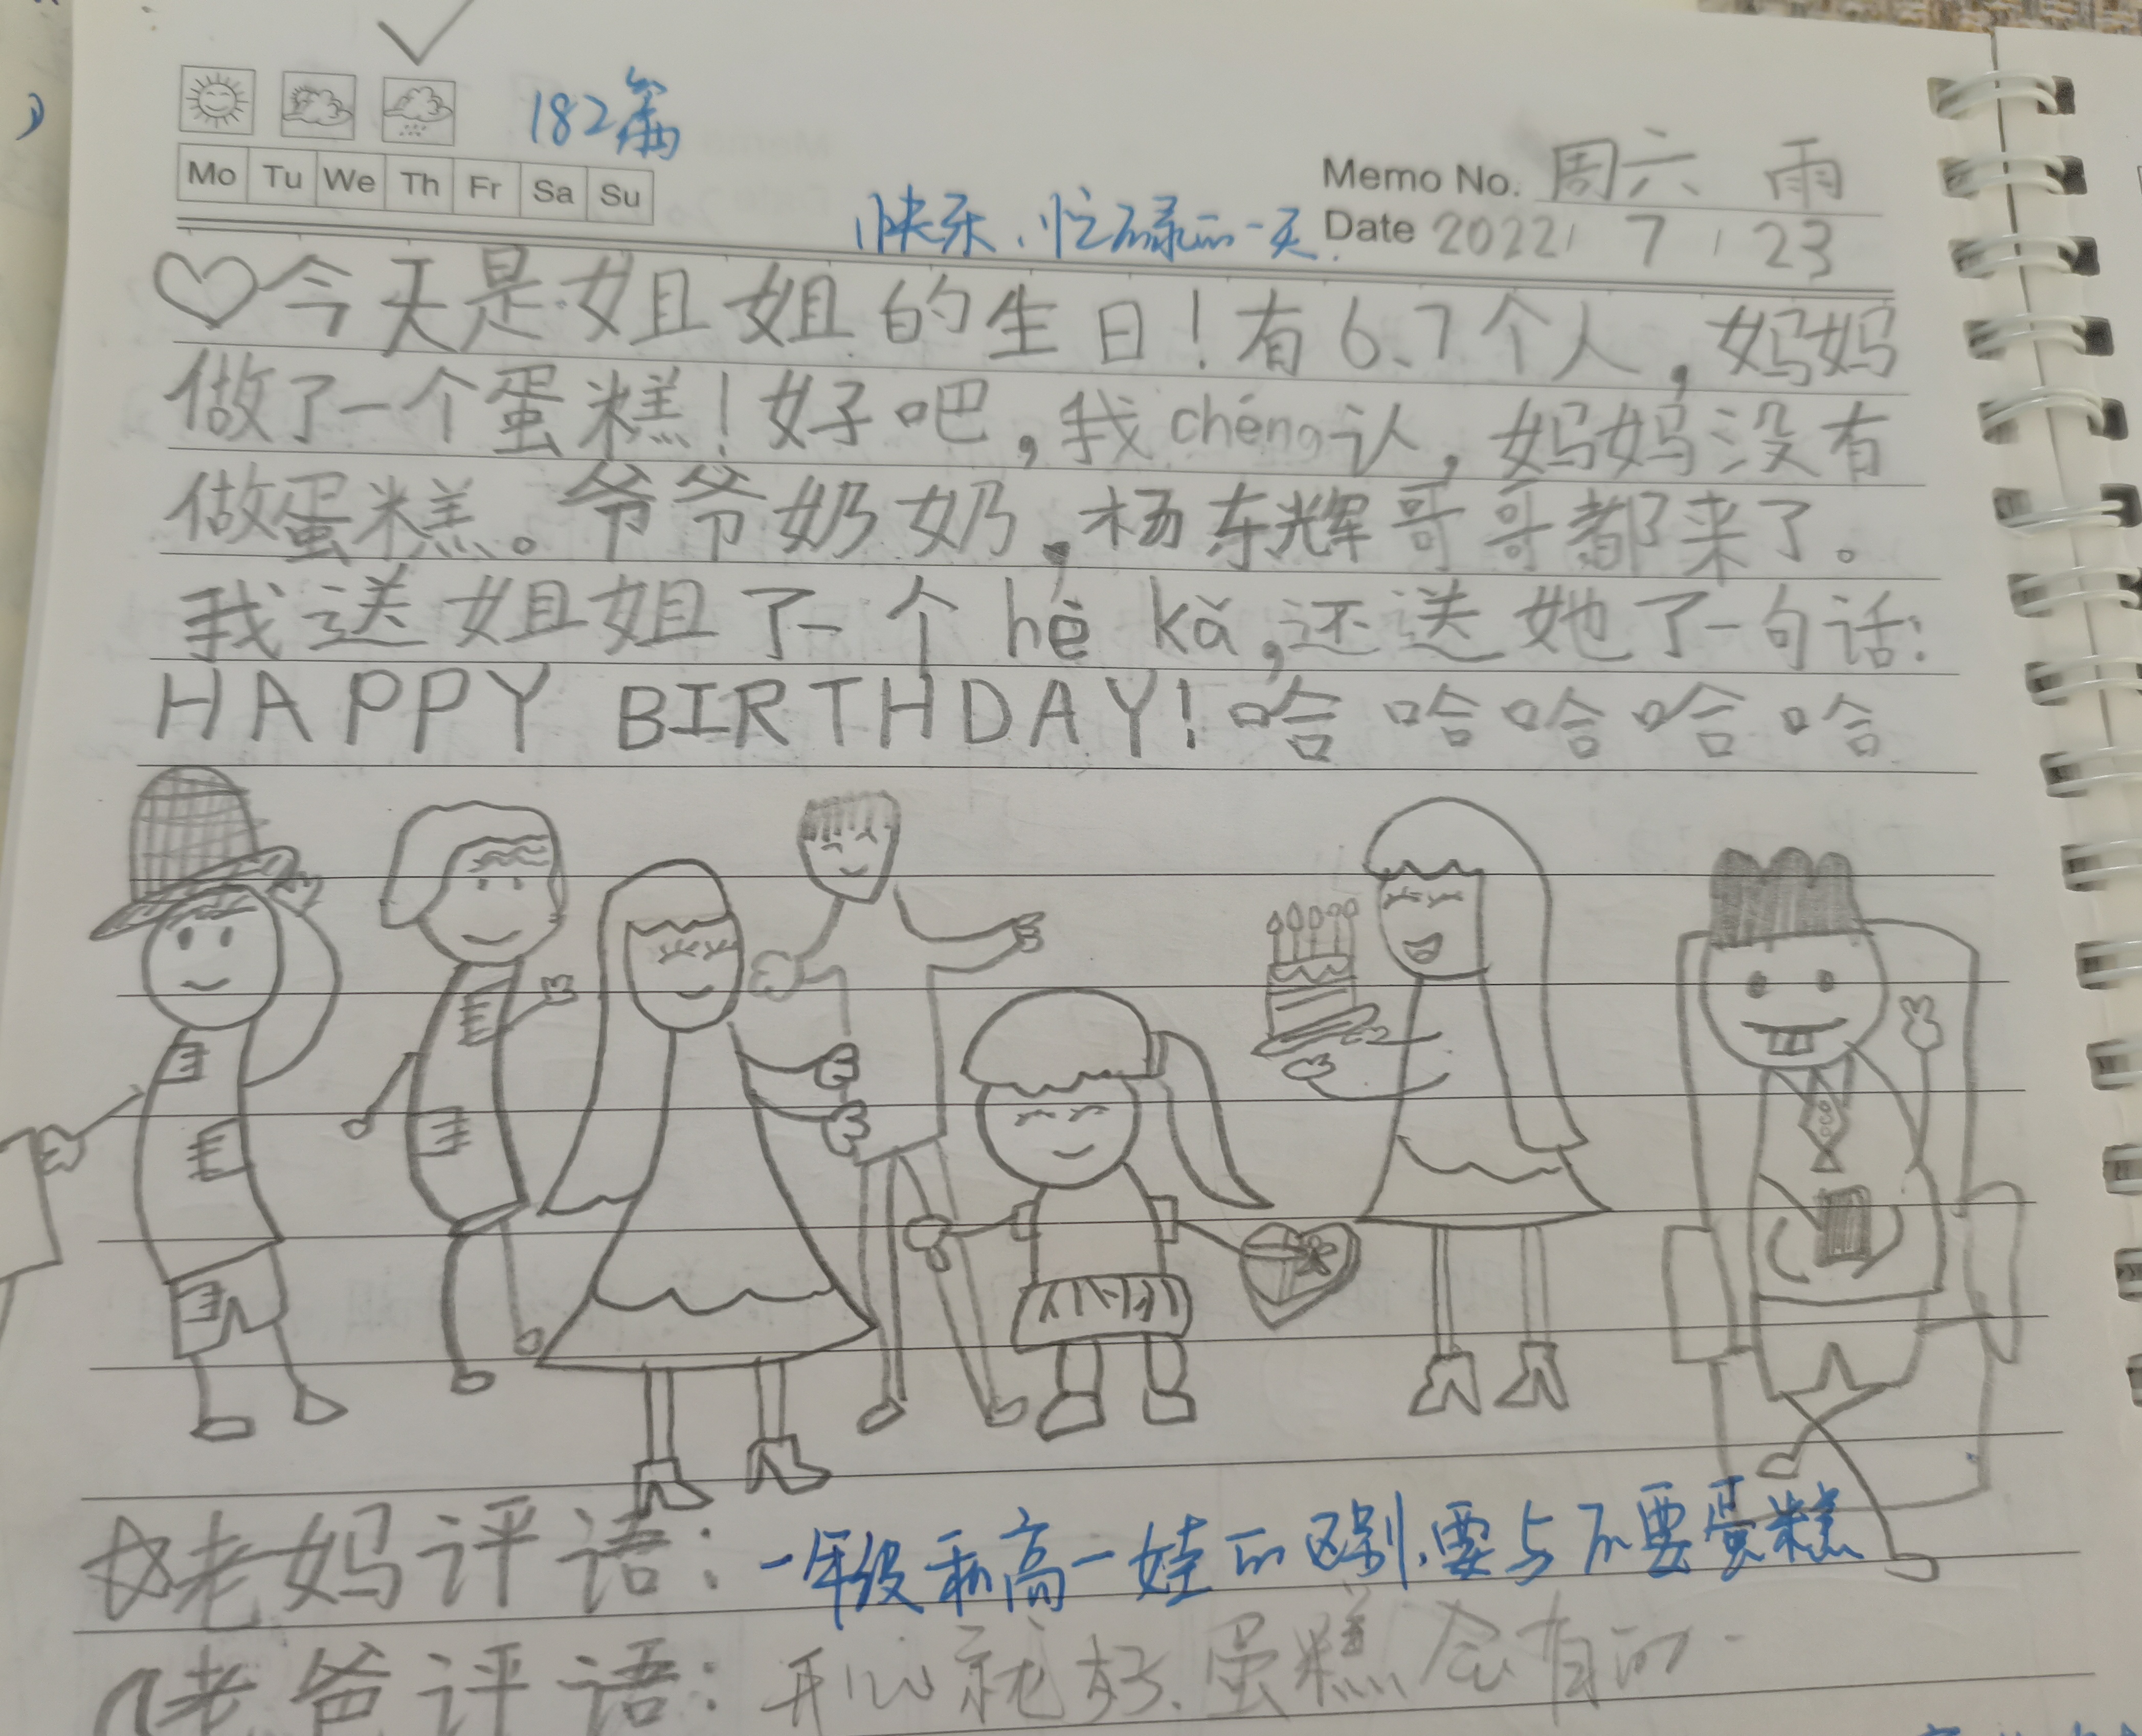 182篇
Mo Tu We Th Fr Sa Su
Memo No. 周六 雨
快乐、忙碌的一天.
Date 2022 / 7 / 23
♡今天是姐姐的生日!有6.7个人,妈妈
做了一个蛋糕!好吧,我chéng认,妈妈没有
做蛋糕。爷爷奶奶,杨东辉哥哥都来了。
我送姐姐了一个hè kǎ,还送她了一句话:
HAPPY BIRTHDAY!哈哈哈哈哈
☆老妈评语:一年级和高一娃的区别,要与不要蛋糕
老爸评语:开心就好.蛋糕会有的.